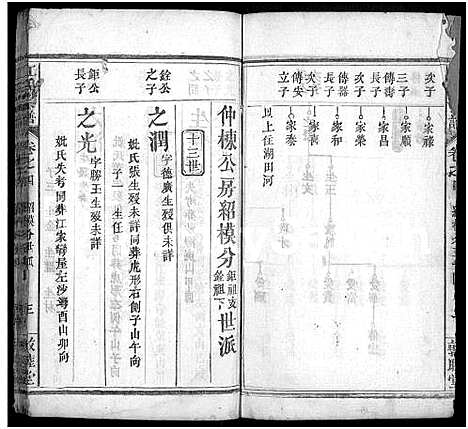 次子
家順
三子
家廉
傳壽
次子
家和
傳器
長子
家榮
次子
家襄
傳安
立子
家泰
以上住湖田河
敦睦堂
仲棟公房紹模分鉅祖支銓祖下世派
十三世
銓公之子
之潤
字德廣生歿俱未詳
妣氏張生歿未詳同葬虎形右側子山午向
子一 生任
鉅公長子
之光
字勝玉生歿未詳
妣氏失考同葬江家灣屋左沙灣酉山卯向
卷之四
敦睦堂